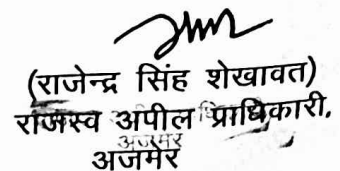 (राजेन्द्र सिंह शेखावत)
राजस्व अपील प्राधिकारी,
अजमेर
अजमेर